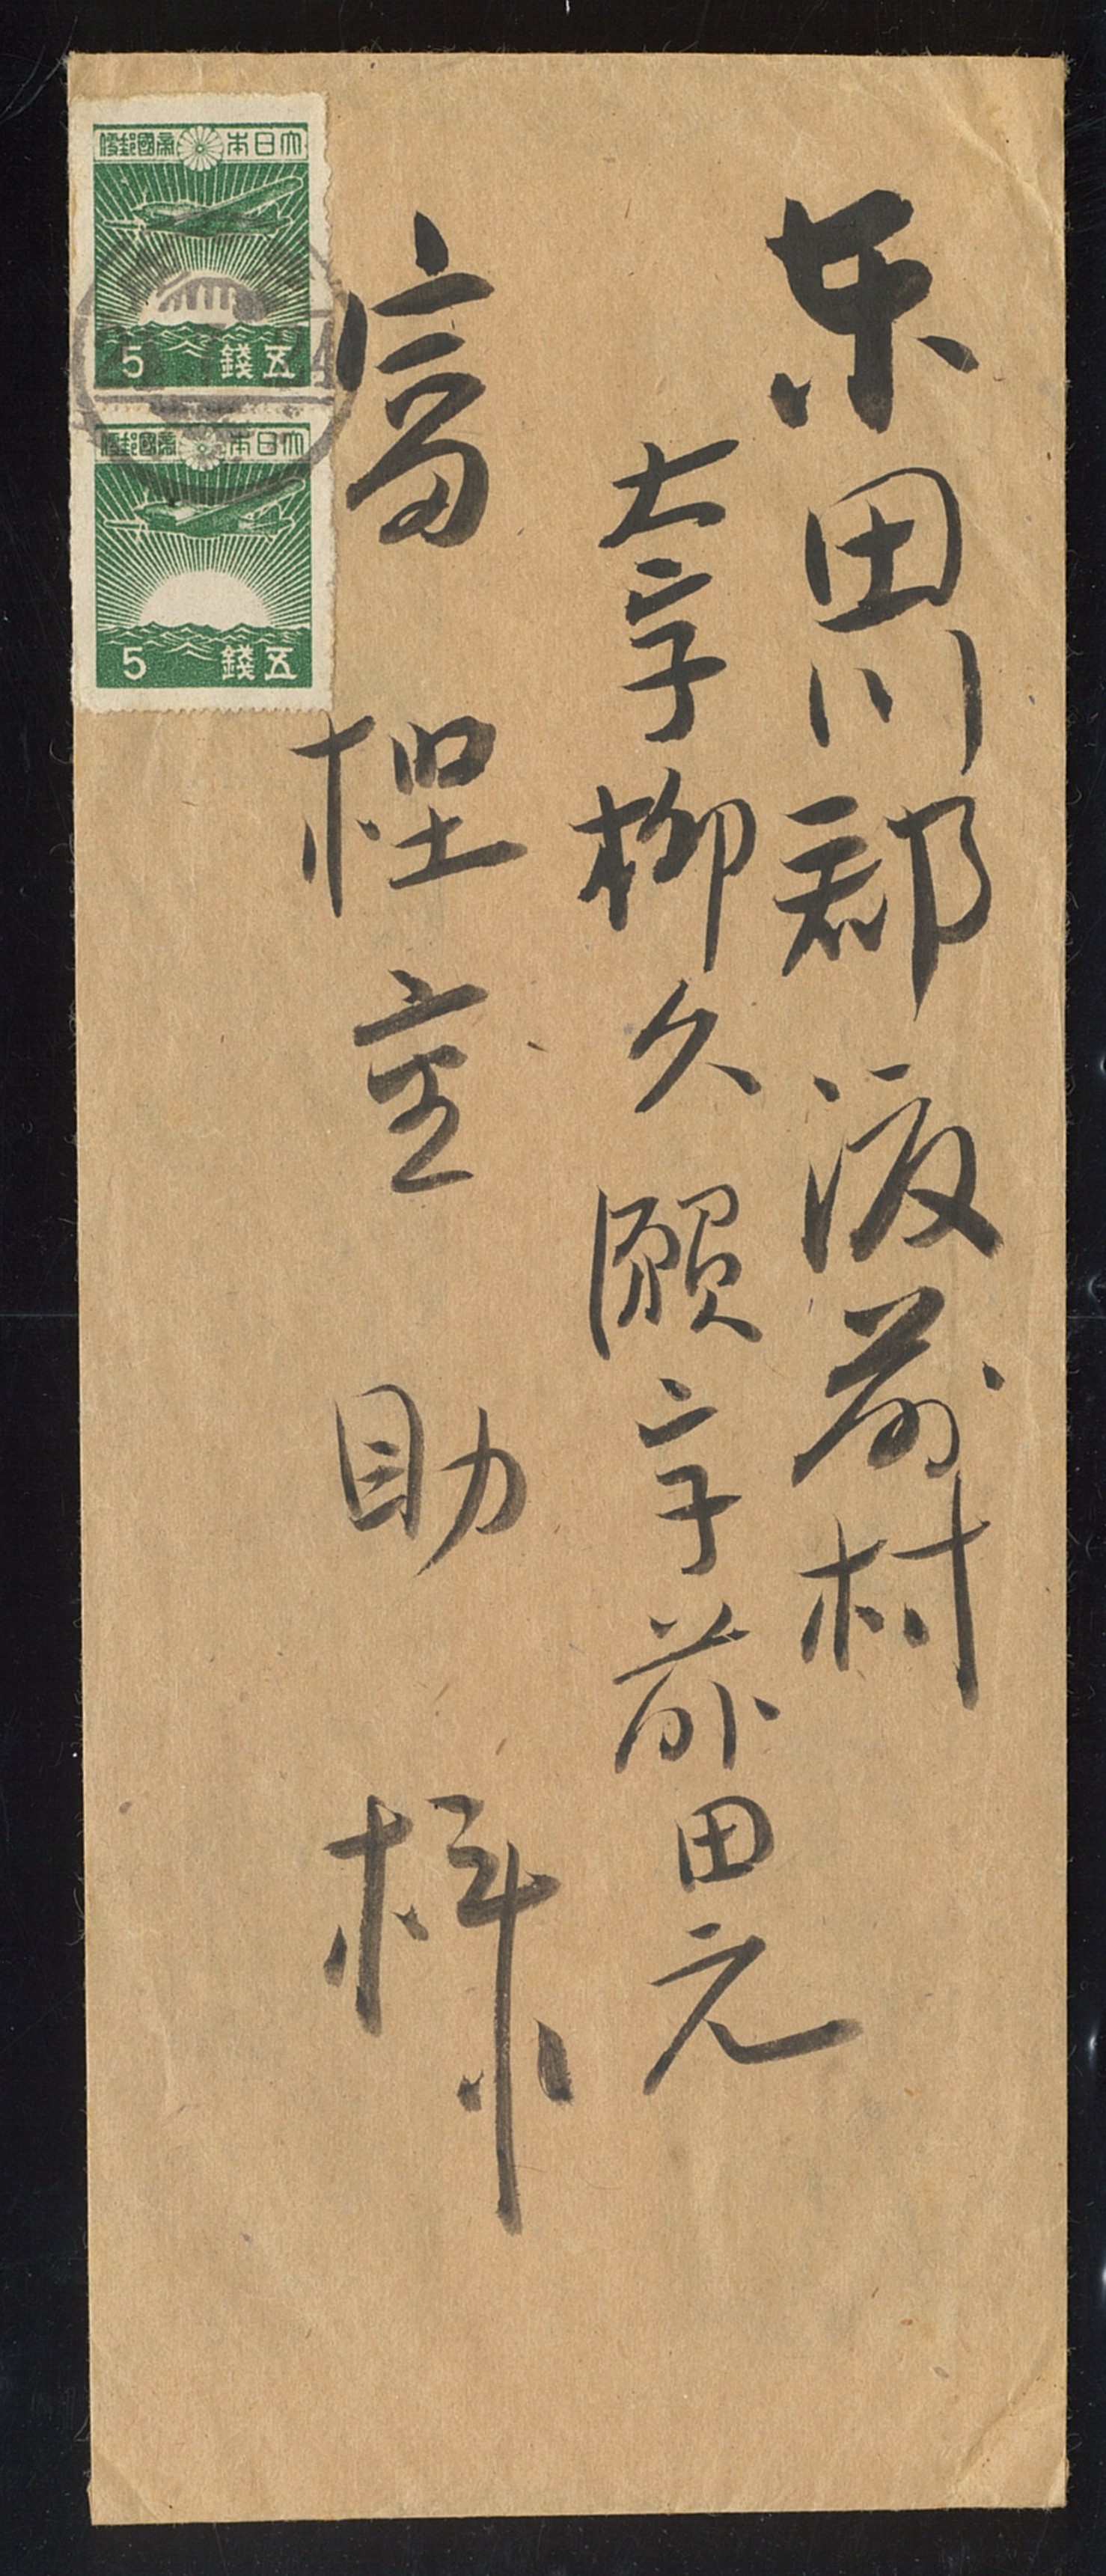 東田川郡渡前村
大字柳久瀬字前田元
富樫重助様
大日本帝國郵便
五錢 5
大日本帝國郵便
五錢 5